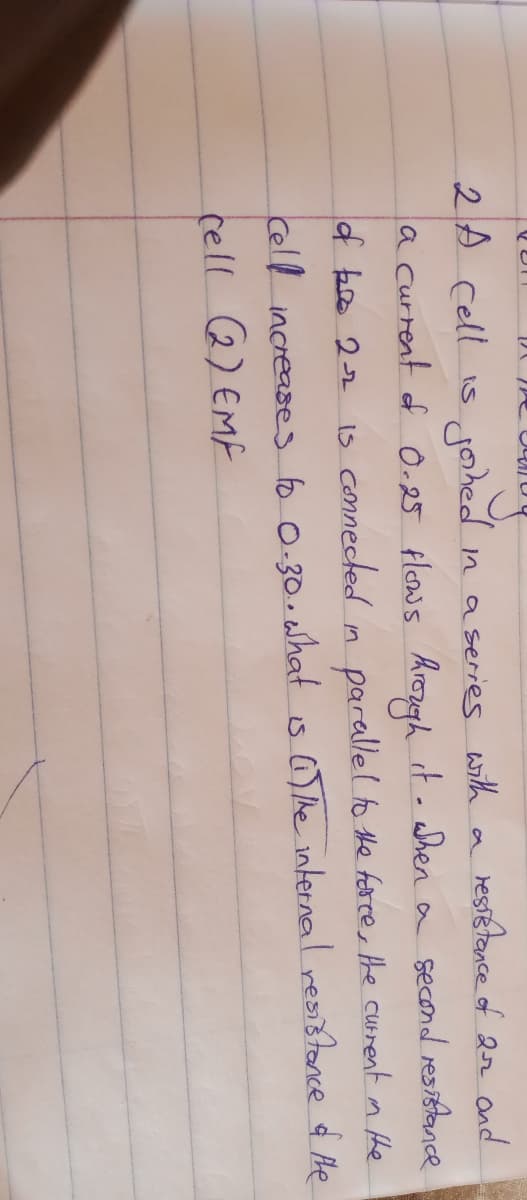 2 A cell is joined in a series with a resistance of 2Ω and
a current of 0.25 flows through it. When a second resistance
of 2Ω is connected in parallel to the force, the current in the
cell increases to 0.30. what is (i) The internal resistance of the
cell (2) EMF